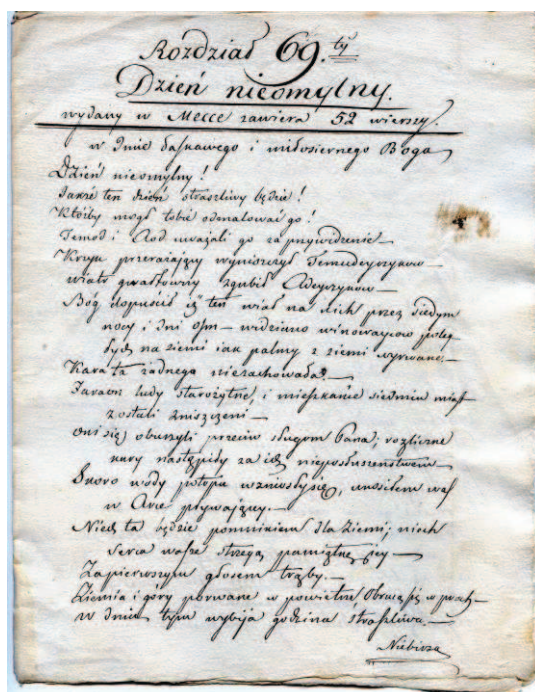 Rozdział 69.ty
Dzień nieomylny.
wydany w Mecce zawiera 52 wierszy.
w Jmie łaskawego i miłosiernego Boga
Dzień nieomylny!
Jakże ten dzień straszliwy będzie!
Któżby mogł tobie odmalować go!
Temod i Aod uważali go za przywidzenie—
Krzyk przerażaiący wyniszczył Temudeyczykow—
wiatr gwałtowny zgubił Adeyczykow—
Bog dopuścił iż ten wiał na nich przez siedym
nocy i dni ośm— widziano winowaycow poleg
łych na ziemi iak palmy z ziemi wyrwane.—
Kara ta żadnego niezachowała.—
Faraon ludy starożytne, i mieszkanie siedmiu miast
zostali zniszczeni—
oni się oburzyli przeciw sługom Pana; rozliczne
kary nastąpiły za ich nieposłuszeństwem—
Skoro wody potopu wzniosły się, unosiłem was
w Arce pływaiącey.—
Niech ta będzie pomnikiem dla ziemi; niech
serca wasze strzegą pamiątnę iey—
Za pierwszym głosem trąby.—
Ziemia i gory porwane w powietrze obrocą się w proch—
w dniu tym wybija godzina straszliwa.—